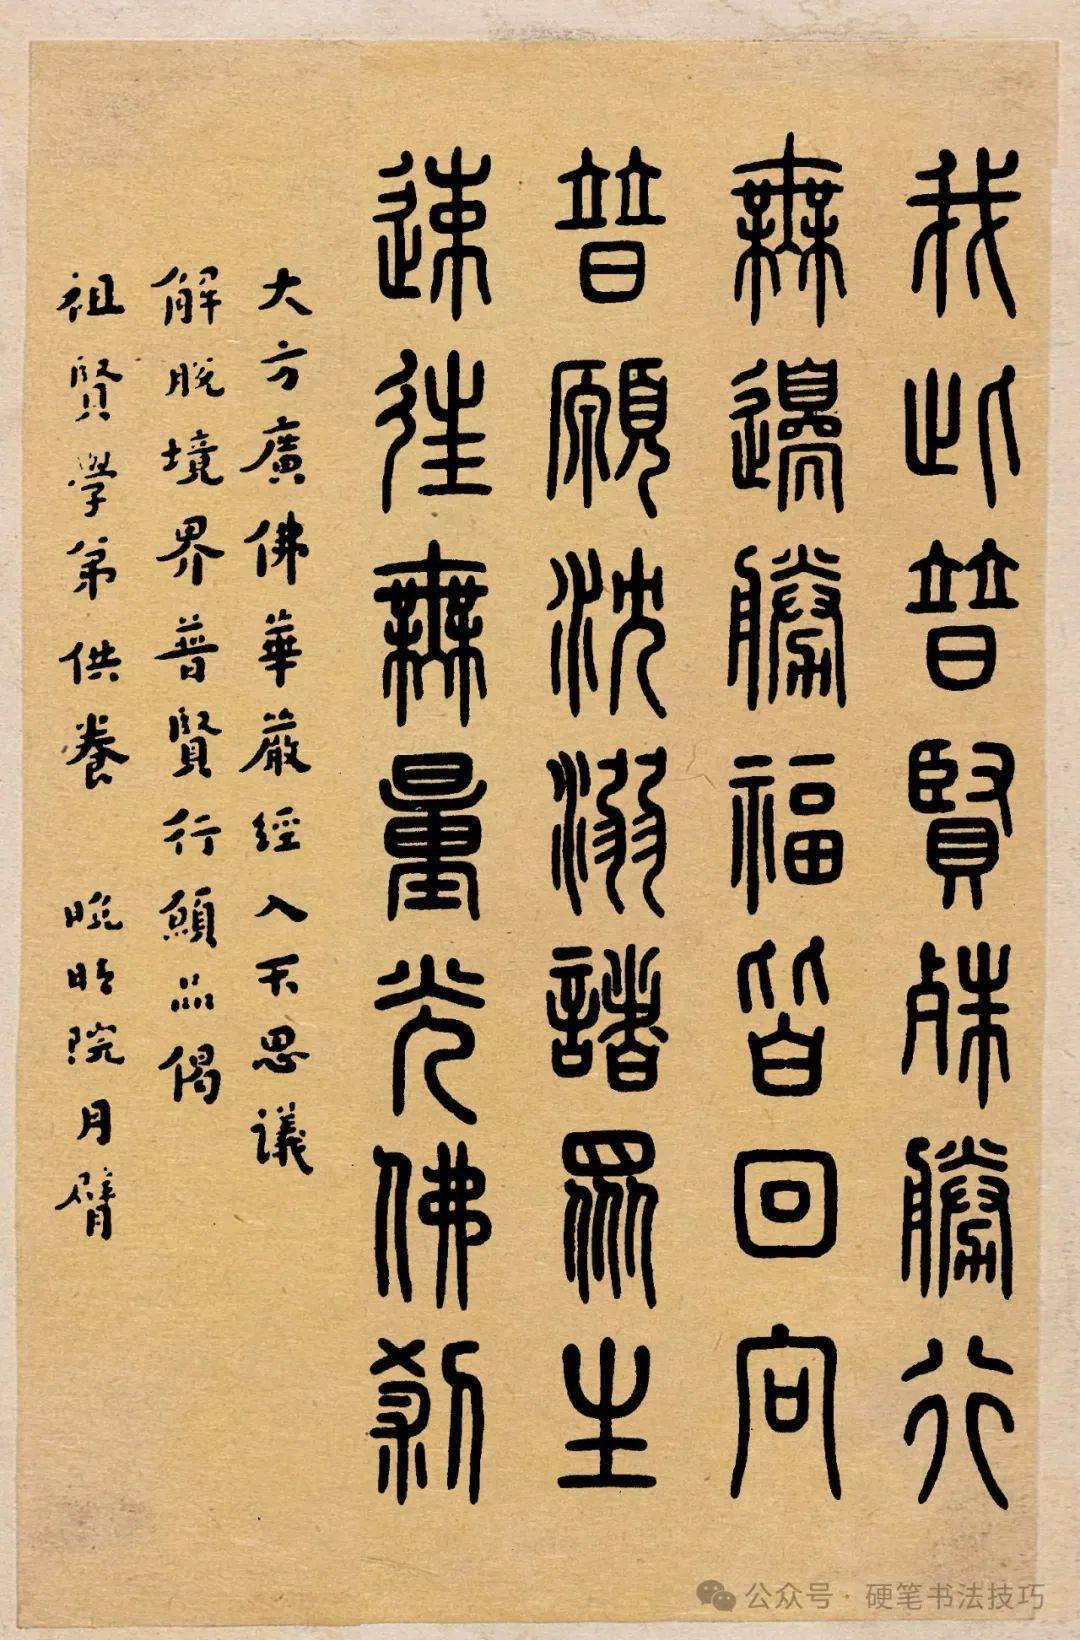 我此普賢殊勝行
無邊勝福皆回向
普願沈溺諸眾生
速往無量光佛刹
大方廣佛華嚴經入不思議
解脫境界普賢行願品偈
祖賢學弟供養 晚晴院月臂
公众号·硬笔书法技巧